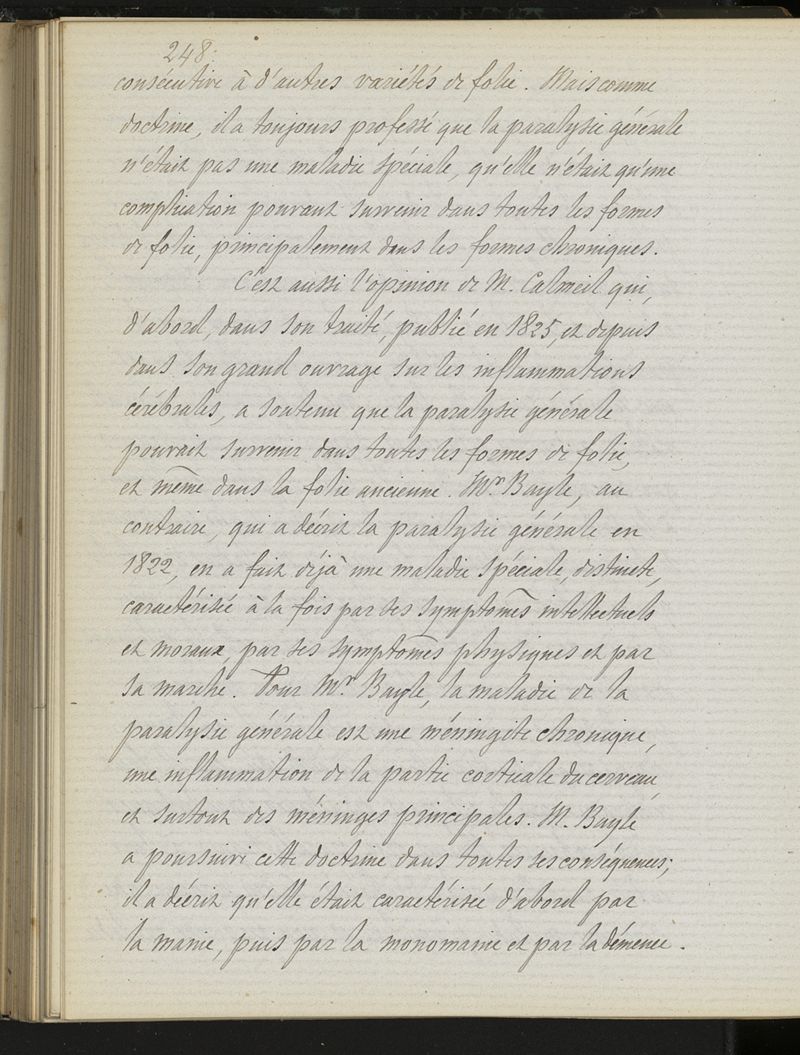 248.
consécutive à d'autres variétés de folie. Mais comme
doctrine, il a toujours professé que la paralysie générale
n'était pas une maladie spéciale, qu'elle n'était qu'une
complication pouvant survenir dans toutes les formes
de folie, principalement dans les formes chroniques.
C'est aussi l'opinion de M. Calmeil qui,
d'abord, dans son traité, publié en 1825, et depuis
dans son grand ouvrage sur les inflammations
cérébrales, a soutenu que la paralysie générale
pouvait survenir dans toutes les formes de folie,
et même dans la folie ancienne. Mr Bayle, au
contraire, qui a décrit la paralysie générale en
1822, en a fait déjà une maladie spéciale, distincte,
caractérisée à la fois par ses symptômes intellectuels
et moraux, par ses symptômes physiques et par
sa marche. Pour Mr Bayle, la maladie de la
paralysie générale est une méningite chronique,
une inflammation de la partie corticale du cerveau,
et surtout des méninges principales. M. Bayle
a poursuivi cette doctrine dans toutes ses conséquences;
il a décrit qu'elle était caractérisée d'abord par
la manie, puis par la monomanie et par la démence.